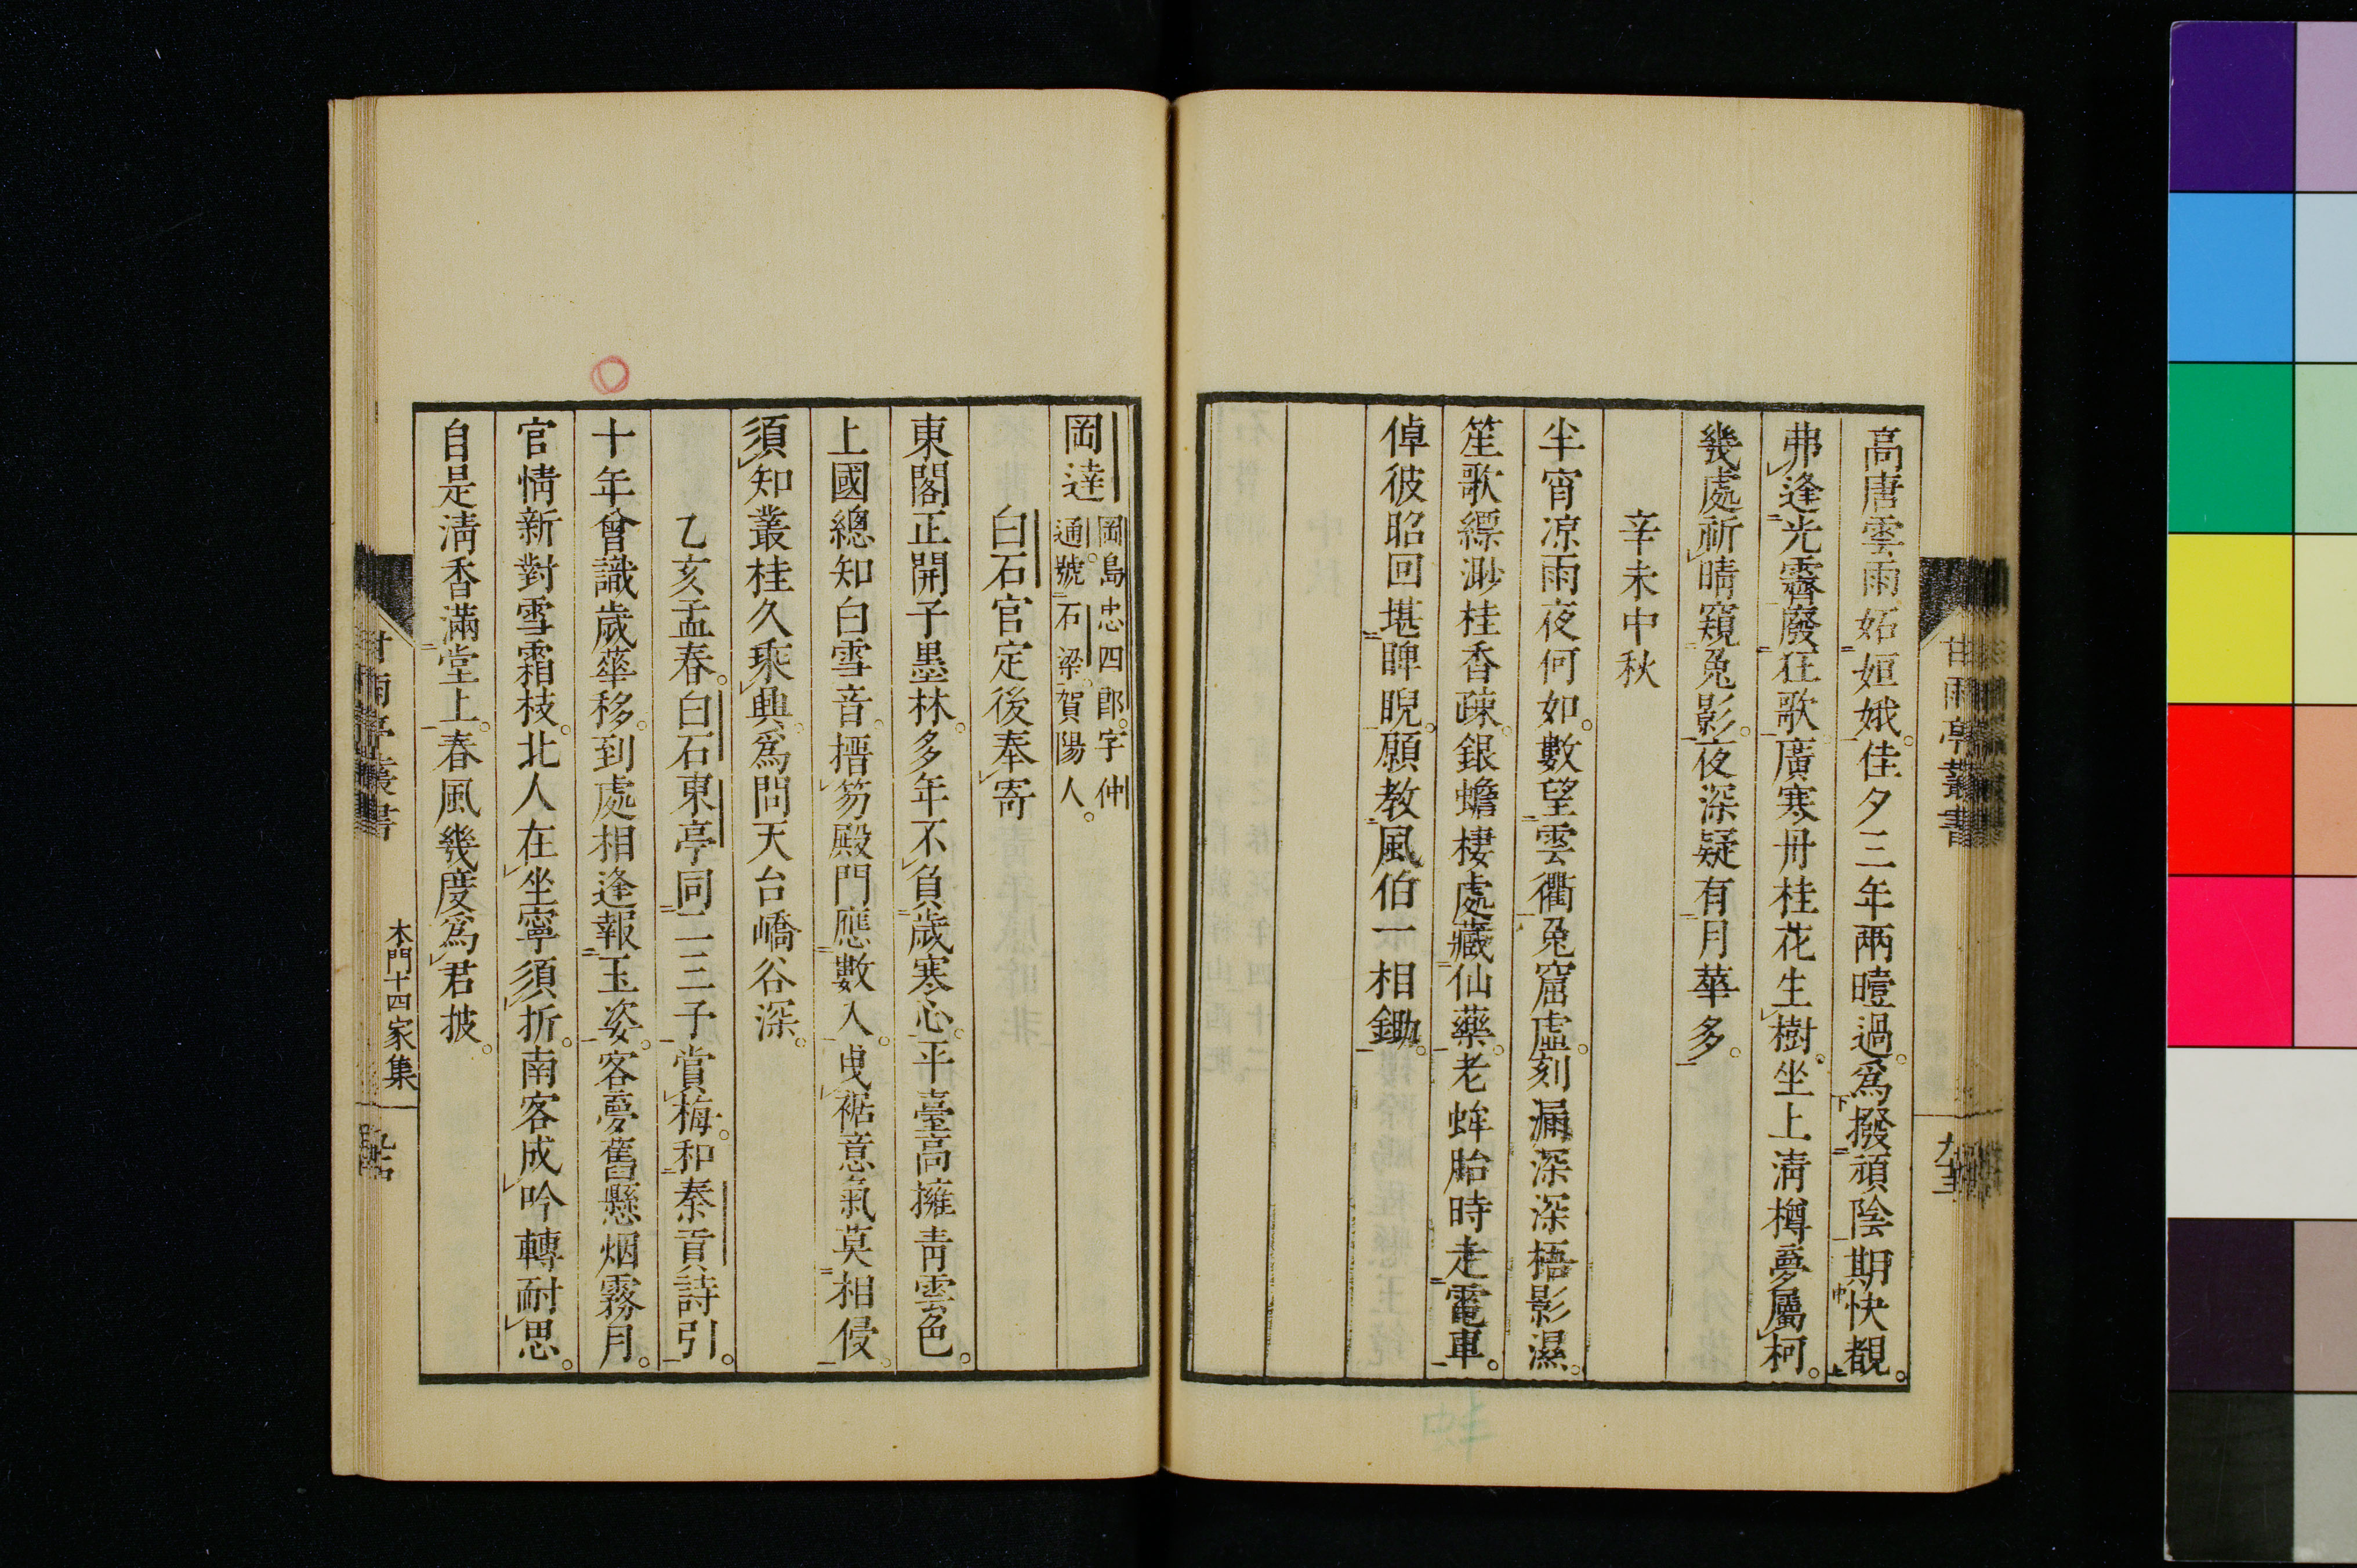 高唐雲雨妬姮娥。佳夕三年兩曀過。爲撥頑陰期快覩。
弗逢光霽廢狂歌。廣寒冊桂花生樹。坐上淸樽夢屬柯。
幾處祈晴窺兔影。夜深疑有月華多。
辛未中秋
半宵凉雨夜何如。數望雲衢兔窟虛。刻漏深深梧影濕。
笙歌縹渺桂香疎。銀蟾棲處藏仙藥。老蚌胎時走電車。
倬彼昭回堪睥睨。願教風伯一相鋤。
甘雨亭叢書
岡達
岡島忠四郎。字仲
通。號石梁。賀陽人。
白石官定後奉寄
東閣正開子墨林。多年不負歲寒心。平臺高擁靑雲色。
上國總知白雪音。搢笏殿門應數人。曳裾意氣莫相侵。
須知叢桂久乘興。爲問天台嶠谷深。
乙亥孟春。白石東亭同二三子賞梅。和秦貢詩引。
十年曾識歲華移。到處相逢報玉姿。客夢舊懸烟霧月。
官情新對雪霜枝。北人在坐寧須折。南客成吟轉耐思。
自是淸香滿堂上。春風幾度爲君披。
甘雨亭叢書
木門十四家集